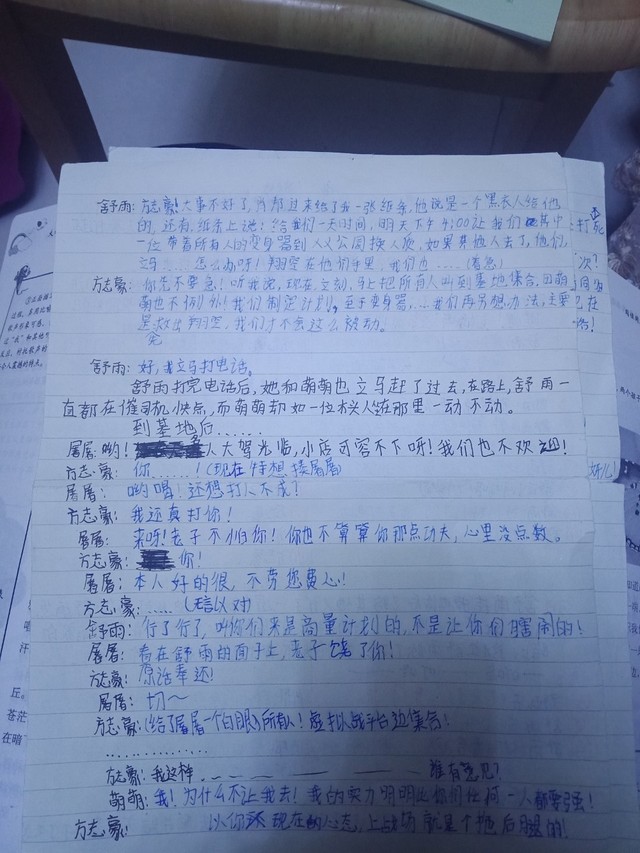 舒雨：方志豪！大事不好了，有帮过来给了我一张纸条，他说是一个黑衣人给他
的，还有，纸条上说：给我们一天时间，明天下午4:00让我们其中
一位带着所有人的变身器到人义公园换人次，如果其他人去了，他们
……怎么办呀！翔空在他们手里，我们也……(着急)
方志豪：你先不要急！听我说，现在，立刻，马上把所有人叫到基地集合，田萌
萌也不例外！我们制定计划。至于变身器……我们再另想办法，主要
是救出翔空，我们才不会这么被动。
舒雨：好，我立马打电话。
舒雨打完电话后，她和萌萌也立马赶了过去，在路上，舒雨一
直都在催司机快点，而萌萌却如一位木人坐在那里一动不动。
到基地后……
屠屠：哟！人大驾光临，小店可容不下呀！我们也不欢迎！
方志豪：你……！(现在特想揍屠屠)
屠屠：哟嗬！还想打人不成？
方志豪：我还真打你！
屠屠：来呀！老子不怕你！你也不算算你那点功夫，心里没点数。
方志豪：你！
屠屠：本人好的很，不劳您费心！
方志豪：……(无言以对)
舒雨：行了行了，叫你们来是商量计划的，不是让你们瞎闹的！
屠屠：看在舒雨的面子上，老子饶了你！
方志豪：原话奉还！
屠屠：切～
方志豪：(给了屠屠一个白眼)所有人！虚拟战平台边集合！
……………
方志豪：我这样 — — — — 谁有意见？
萌萌：我！为什么不让我去！我的实力明明比你们任何一人都要强！
方志豪：以你现在的心态，上战场就是个拖后腿的！
打死
次？
已在